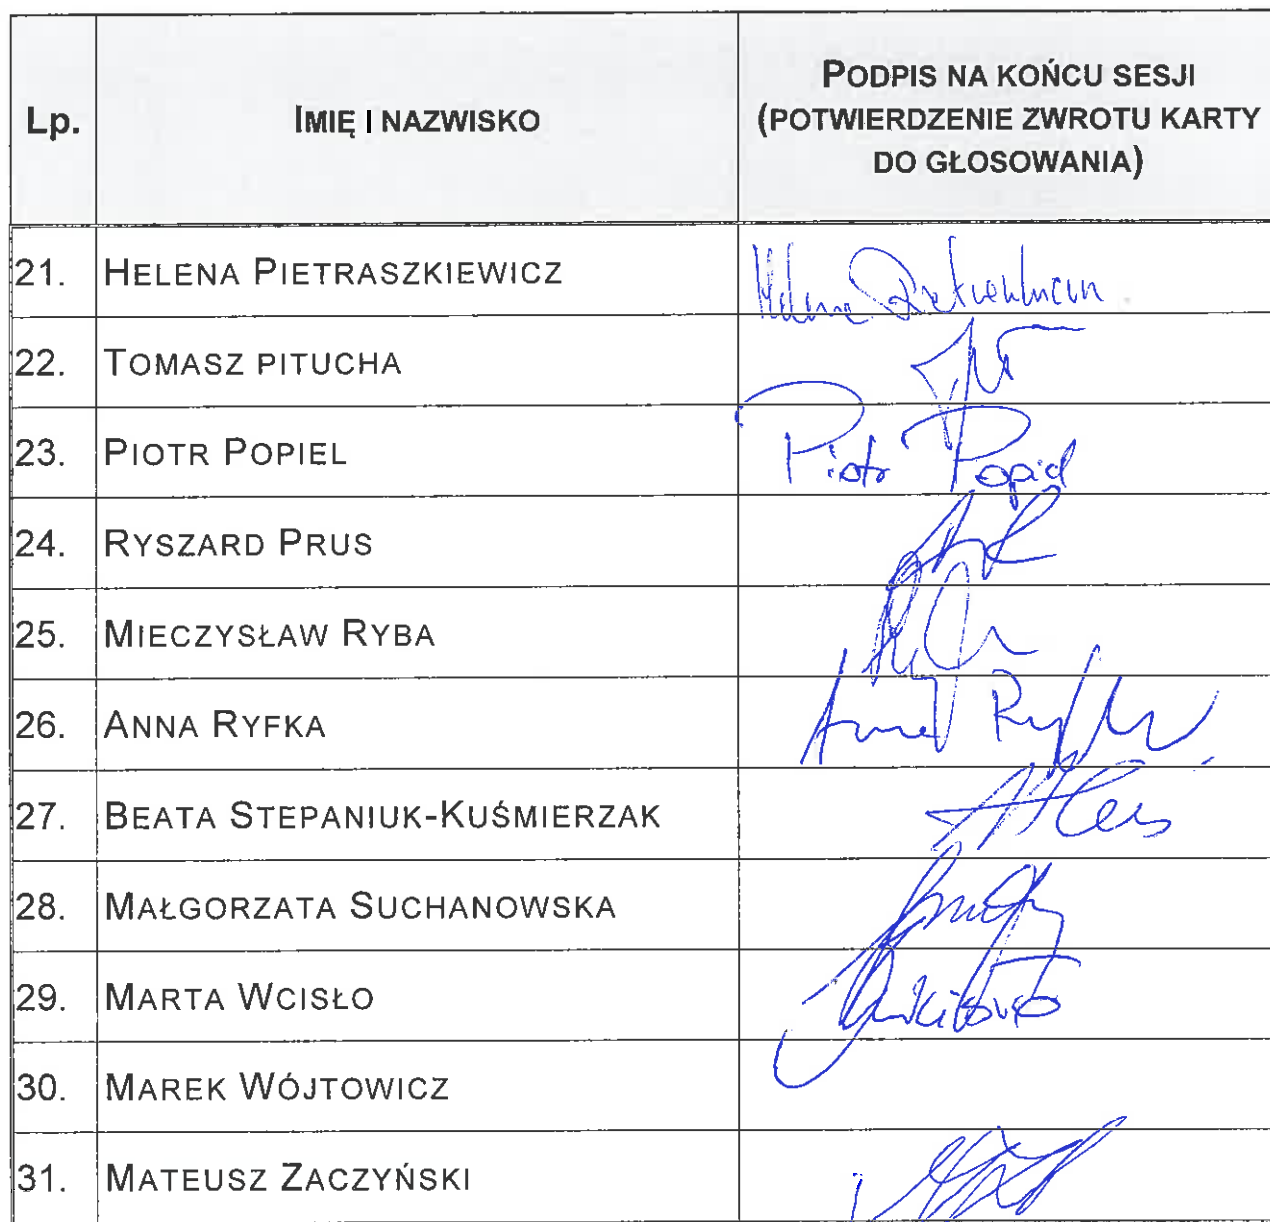 Lp.
IMIĘ I NAZWISKO
PODPIS NA KOŃCU SESJI
(POTWIERDZENIE ZWROTU KARTY
DO GŁOSOWANIA)
21. HELENA PIETRASZKIEWICZ Helena
22. TOMASZ PITUCHA
23. PIOTR POPIEL Piotr Popiel
24. RYSZARD PRUS
25. MIECZYSŁAW RYBA
26. ANNA RYFKA Anna Ryfka
27. BEATA STEPANIUK-KUŚMIERZAK
28. MAŁGORZATA SUCHANOWSKA
29. MARTA WCISŁO
30. MAREK WÓJTOWICZ
31. MATEUSZ ZACZYŃSKI